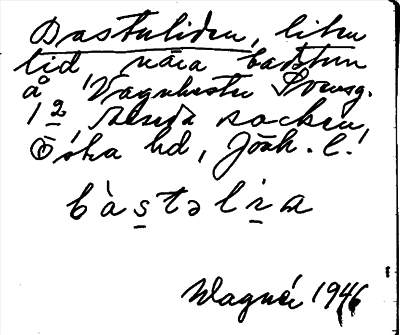 Bastuliden, liten
lid nära bastun
å Vagnhestra Sousg.
1 2, Alseda socken,
Östra hd, Jönk. l.
bàstəlira
Wagnér 1946